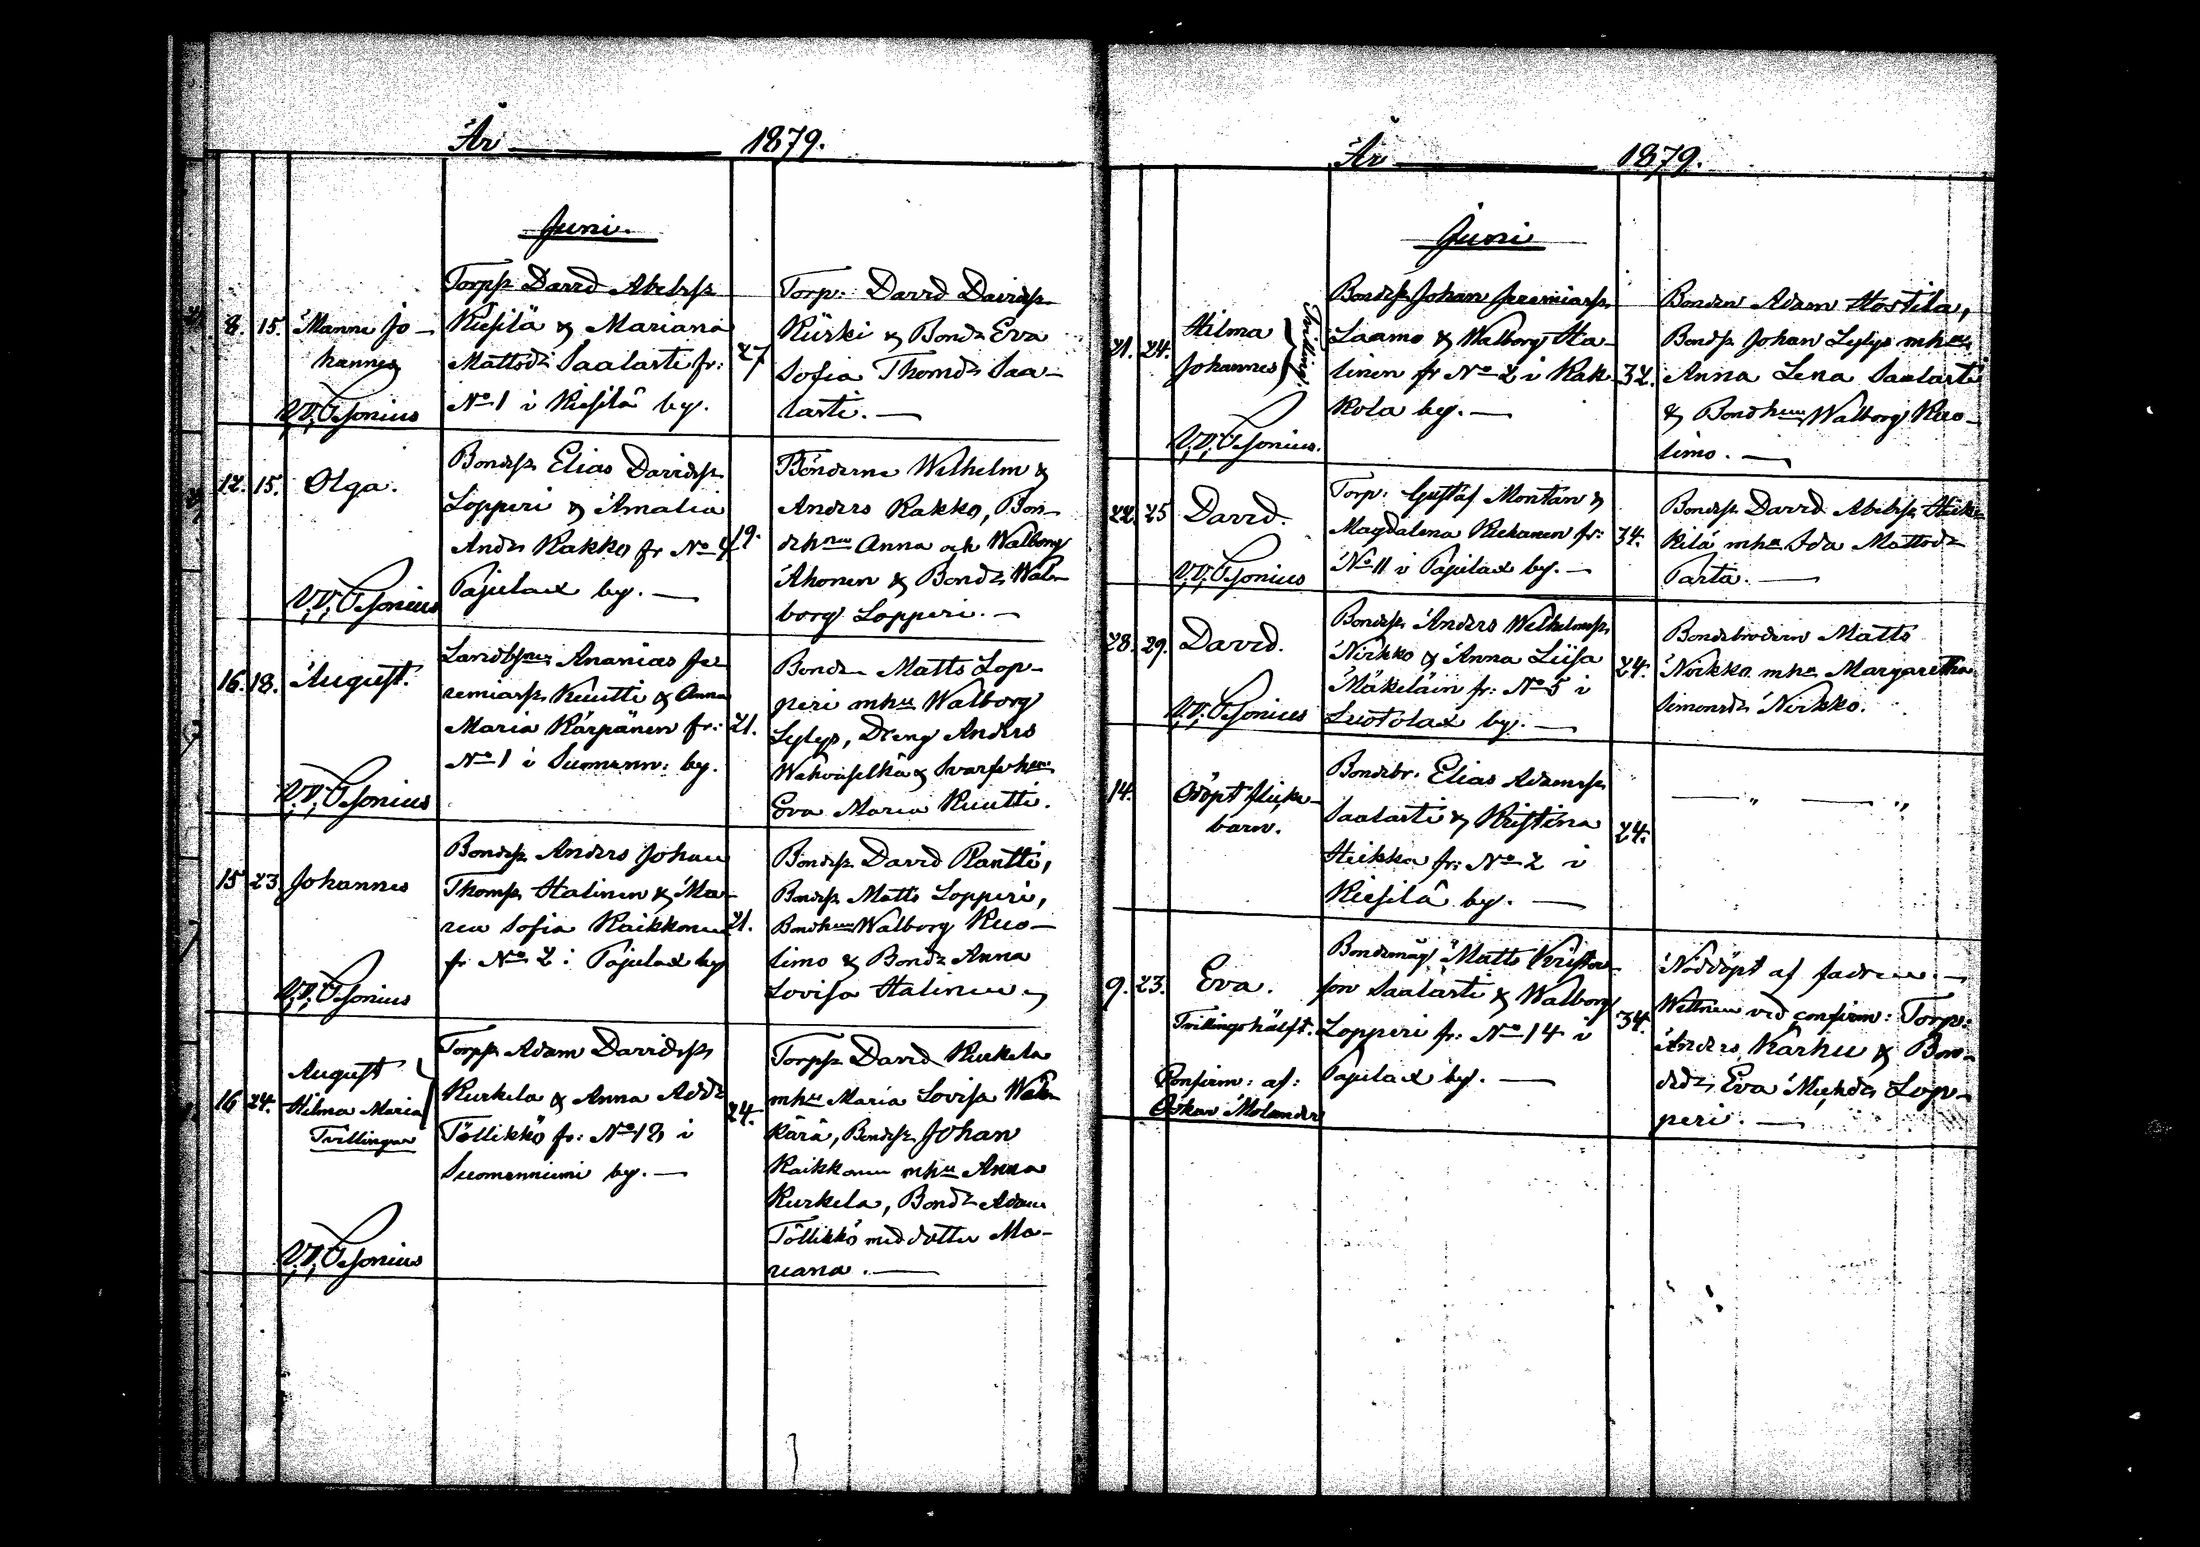 År 1879.
Juni.
8. 15. Manne Jo-
hannes
V.V. Clsonius
Torpss David Abelss
Kiesilä & Mariana
Mattsdr Saalasti fr:
No 1 i Kiesilä by.
27
Torp: David Davidss
Kürki & Bondr Eva
Sofia Thomdr Saa-
lasti. —
12. 15. Olga.
Bondss Elias Davidss
Lopperi & Amalia
Andr Kakko fr No 4
Pajulax by. —
19.
Bönderne Wilhelm &
Anders Kakko, Bon-
dehnn Anna och Walborg
Ahonen & Bondr Wal-
borg Lopperi. —
16. 18. August.
Ananias Je-
remiass Kuutti & Anna
Maria Kärpänen fr:
No 1 i Suomenn: by.
21.
Bonden Matts Lop-
peri mhu Walborg
Lylys, Dreng Anders
Wehviläselkä &
Eva Maria Kuutti.
15 23 Johannes
Bondss Anders Johan
Thomss Halinen & Ma-
ria Sofia Kaikkonen
fr No 2 i Pajulax by
21.
Bondss David Rantti,
Bondss Matts Lopperi,
Bondhnn Walborg Kuo-
simo & Bondr Anna
Lovisa Halinen. —
16 24. August
Hilma Maria
Tvillingar
Torpss Adam Davidss
Kurkela & Anna Addr
Töllikkö fr: No 18 i
Suomenniemi by. —
24.
Torpss David Kurkela
mhu Maria Lovisa
Bondss Johan
Kaikkonen mhu Anna
Kurkela, Bondr Adam
Töllikkö med dotter Ma-
riana. —
År 1879.
Juni
21. 24. Hilma
Johannes
Tvilling:
Bondss Johan Jeremiass
Laamo & Walborg Ha-
linen fr No 2 i Kak-
kola by. —
32.
Bonden Adam Hostila,
Bondss Johan Lylys mhu
Anna Lena Saalasti
& Bondhnn Walborg Kuo-
simo. —
22 25 David.
Torp: Gustaf Montan &
Magdalena Kiekanen fr:
No 11 i Pajulax by. —
34.
Bondss David Abelss Heik-
kilä mhu Ida Mattsdr
Parta. —
28. 29. David.
Bondss Anders Wilhelmss
Nirkko & Anna Liisa
Mäkeläin fr: No 5 i
Luotolax by. —
24.
Bondebrodern Matts
Nirkko mhu Margaretha
Simonsdr Nirkko.
14. Odöpt flicke-
barn.
Bondebr. Elias Adamss
Saalasti & Kristina
Heikka fr: No 2 i
Kiesilä by. —
24.
— „ — „
9. 23. Eva.
Tvillingshälft.
Confirm: af:
Oskar Molander
Bondemåg Matts Kristers-
son Saalasti & Walborg
Lopperi fr: No 14 i
Pajulax by. —
34.
Nöddöpt af fadren. —
Wittnen vid confirm: Torp:
Anders Karhu & Bon-
dedr Eva Michdr Lop-
peri. —